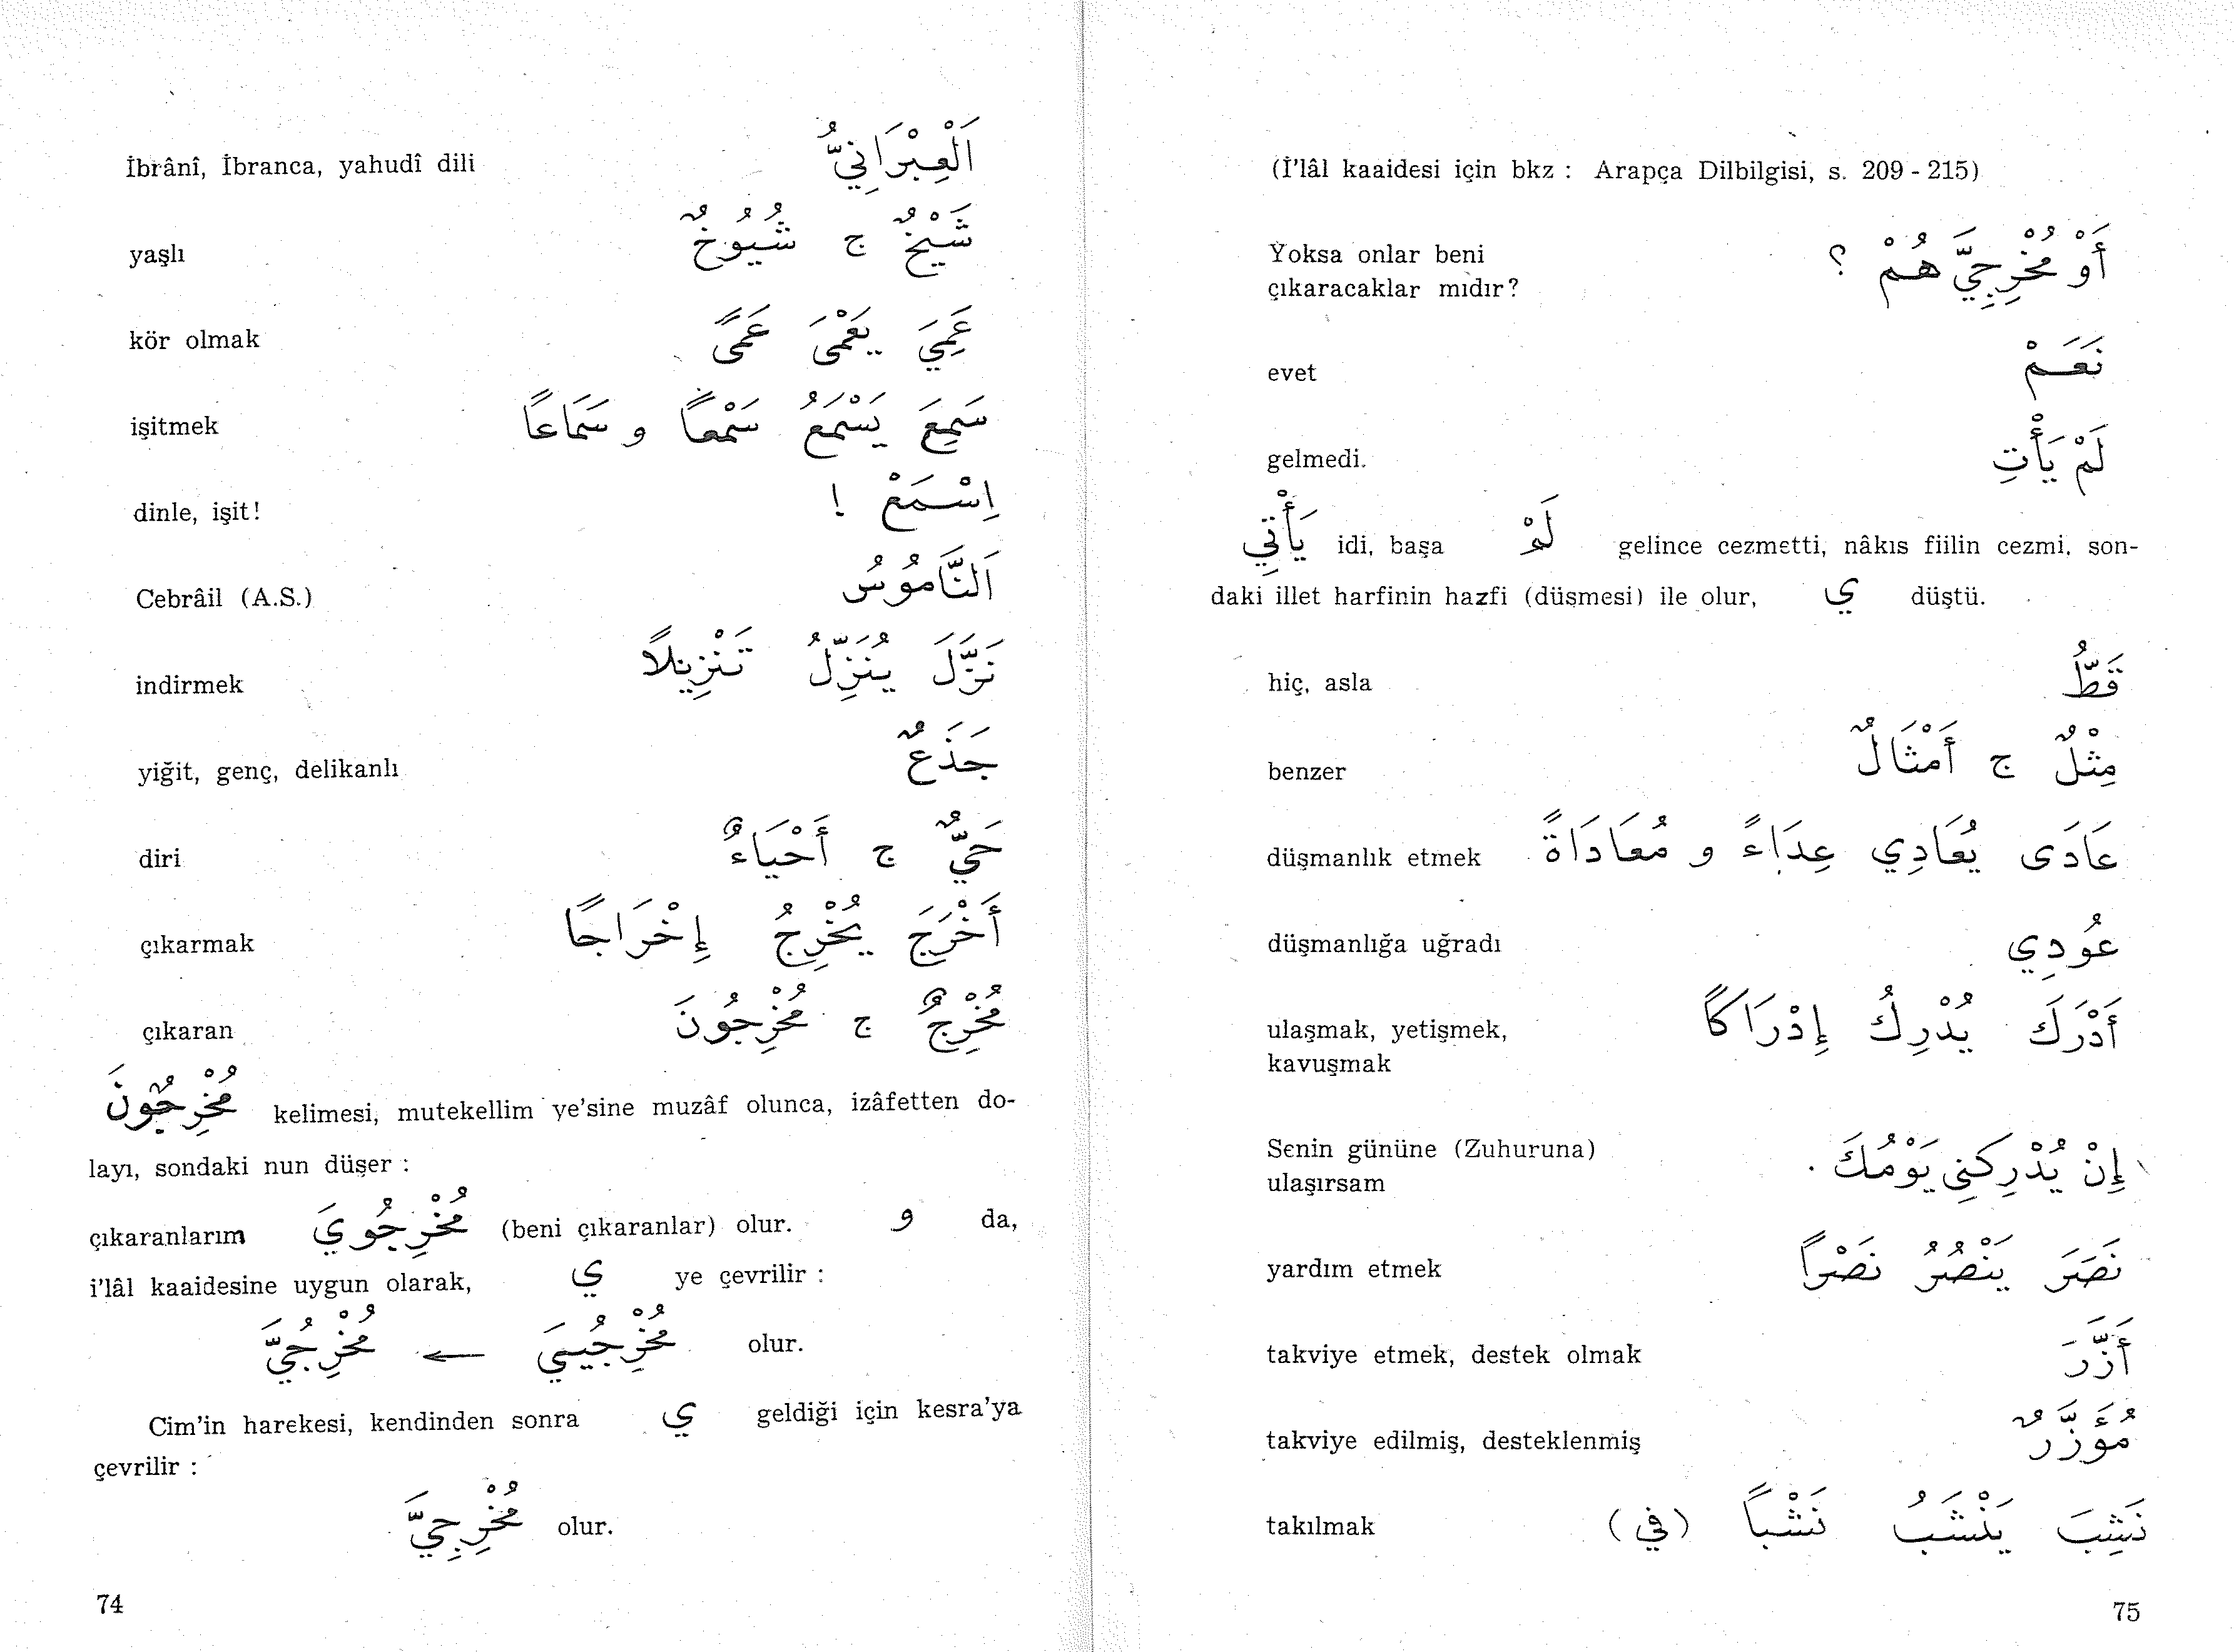 İbrânî, İbranca, yahudî dili اَلْعِبْرَانِيُّ
yaşlı شَيْخٌ ج شُيُوخٌ
kör olmak عَمِيَ يَعْمَى عَمًى
işitmek سَمِعَ يَسْمَعُ سَمْعًا و سَمَاعًا
dinle, işit! اِسْمَعْ !
Cebrâil (A.S.) اَلنَّامُوسُ
indirmek نَزَّلَ يُنَزِّلُ تَنْزِيلًا
yiğit, genç, delikanlı جَذَعٌ
diri حَيٌّ ج أَحْيَاءٌ
çıkarmak أَخْرَجَ يُخْرِجُ إِخْرَاجًا
çıkaran مُخْرِجٌ ج مُخْرِجُونَ
مُخْرِجُونَ kelimesi, mutekellim ye'sine muzâf olunca, izâfetten do-
layı, sondaki nun düşer :
çıkaranlarım مُخْرِجُويَ (beni çıkaranlar) olur. و da,
i'lâl kaaidesine uygun olarak, ي ye çevrilir :
مُخْرِجُيَّ ← مُخْرِجُيْيَ olur.
Cim'in harekesi, kendinden sonra ي geldiği için kesra'ya
çevrilir :
مُخْرِجِيَّ olur.
74
(İ'lâl kaaidesi için bkz : Arapça Dilbilgisi, s. 209 - 215)
Yoksa onlar beni أَوْ مُخْرِجِيَّ هُمْ ؟
çıkaracaklar mıdır?
evet نَعَمْ
gelmedi. لَمْ يَأْتِ
يَأْتِي idi, başa لَمْ gelince cezmetti, nâkıs fiilin cezmi, son-
daki illet harfinin hazfi (düşmesi) ile olur, ي düştü.
hiç, asla قَطُّ
benzer مِثْلٌ ج أَمْثَالٌ
düşmanlık etmek عَادَى يُعَادِي عِدَاءً و مُعَادَاةً
düşmanlığa uğradı عُودِي
ulaşmak, yetişmek, أَدْرَكَ يُدْرِكُ إِدْرَاكًا
kavuşmak
Senin gününe (Zuhuruna) إِنْ يُدْرِكْنِي يَوْمُكَ .
ulaşırsam
yardım etmek نَصَرَ يَنْصُرُ نَصْرًا
takviye etmek, destek olmak أَزَّرَ
takviye edilmiş, desteklenmiş مُؤَزَّرٌ
takılmak نَشِبَ يَنْشَبُ نَشْبًا (في)
75